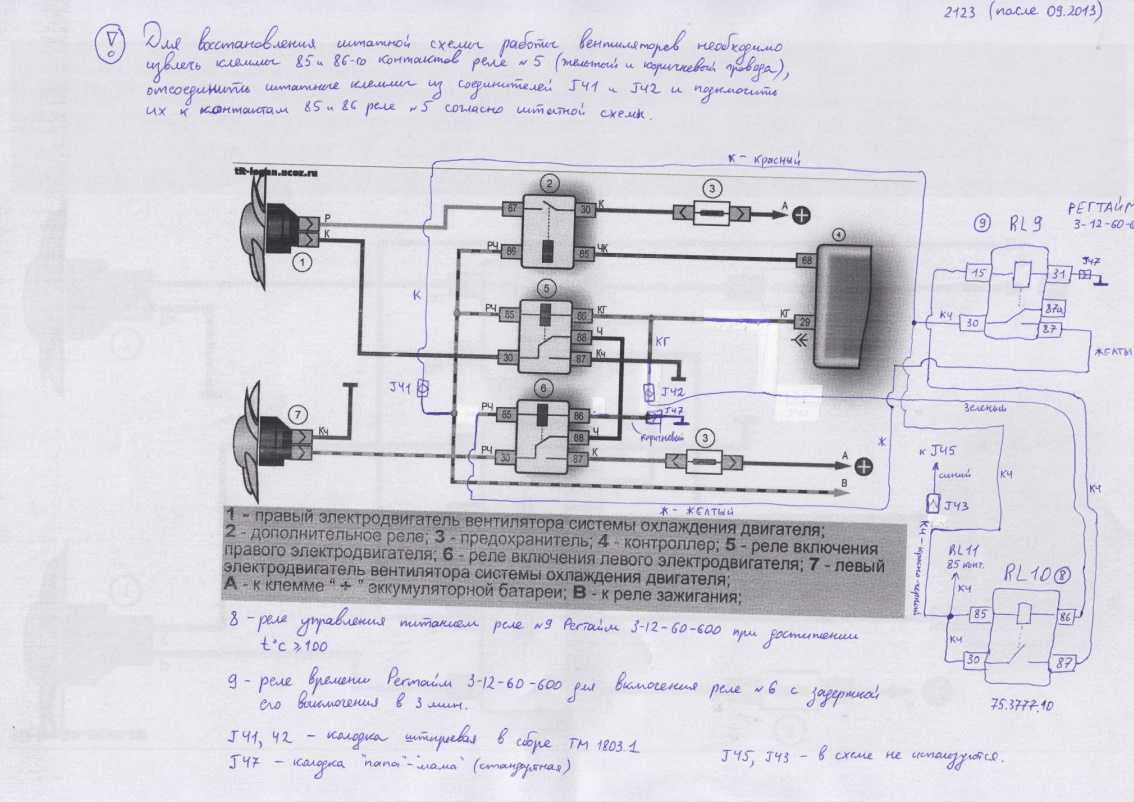 2123 (после 09.2013)
Для восстановления штатной схемы работы вентиляторов необходимо
извлечь клеммы 85 и 86-го контактов реле №5 (желтый и коричневый провода),
отсоединить штатные клеммы из соединителей J41 и J42 и подключить
их к контактам 85 и 86 реле №5 согласно штатной схемы.
К - красный
2
3
67
30
К
А
Р
К
1
86
РЧ
85
ЧК
68
4
К
5
РЧ
85
86
КГ
КГ
29
88
Ч
КГ
30
87
Кч
J41
J42
6
РЧ
85
86
J47
коричневый
7
Кч
88
Ч
3
РЧ
30
87
К
А
В
Ж - ЖЕЛТЫЙ
Ж
зеленый
9
RL9
РЕГТАЙМ
15
31
J47
КЧ
30
87а
87
к J45
синий
J43
КЧ
КЧ
КЧ - красно-черный
RL11
85 конт.
КЧ
RL10
8
85
86
КЧ
30
87
75.3777.10
1 - правый электродвигатель вентилятора системы охлаждения двигателя;
2 - дополнительное реле; 3 - предохранитель; 4 - контроллер; 5 - реле включения
правого электродвигателя; 6 - реле включения левого электродвигателя; 7 - левый
электродвигатель вентилятора системы охлаждения двигателя;
А - к клемме “ + ” аккумуляторной батареи; В - к реле зажигания;
8 - реле управления питанием реле №9 Регтайм 3-12-60-600 при достижении
t°c ≥ 100
9 - реле времени Регтайм 3-12-60-600 для включения реле №6 с задержкой
его выключения в 3 мин.
J41, 42 - колодка штыревая в сборе ТМ 1803.1
J47 - колодка "папа"-"мама" (стандартная)
J45, J43 - в схеме не используются.